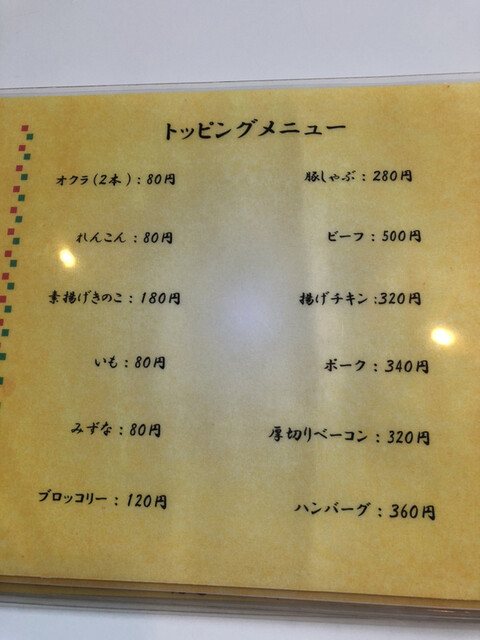 トッピングメニュー
オクラ(2本):80円
れんこん:80円
素揚げきのこ:180円
いも:80円
みずな:80円
ブロッコリー:120円
豚しゃぶ:280円
ビーフ:500円
揚げチキン:320円
ポーク:340円
厚切りベーコン:320円
ハンバーグ:360円